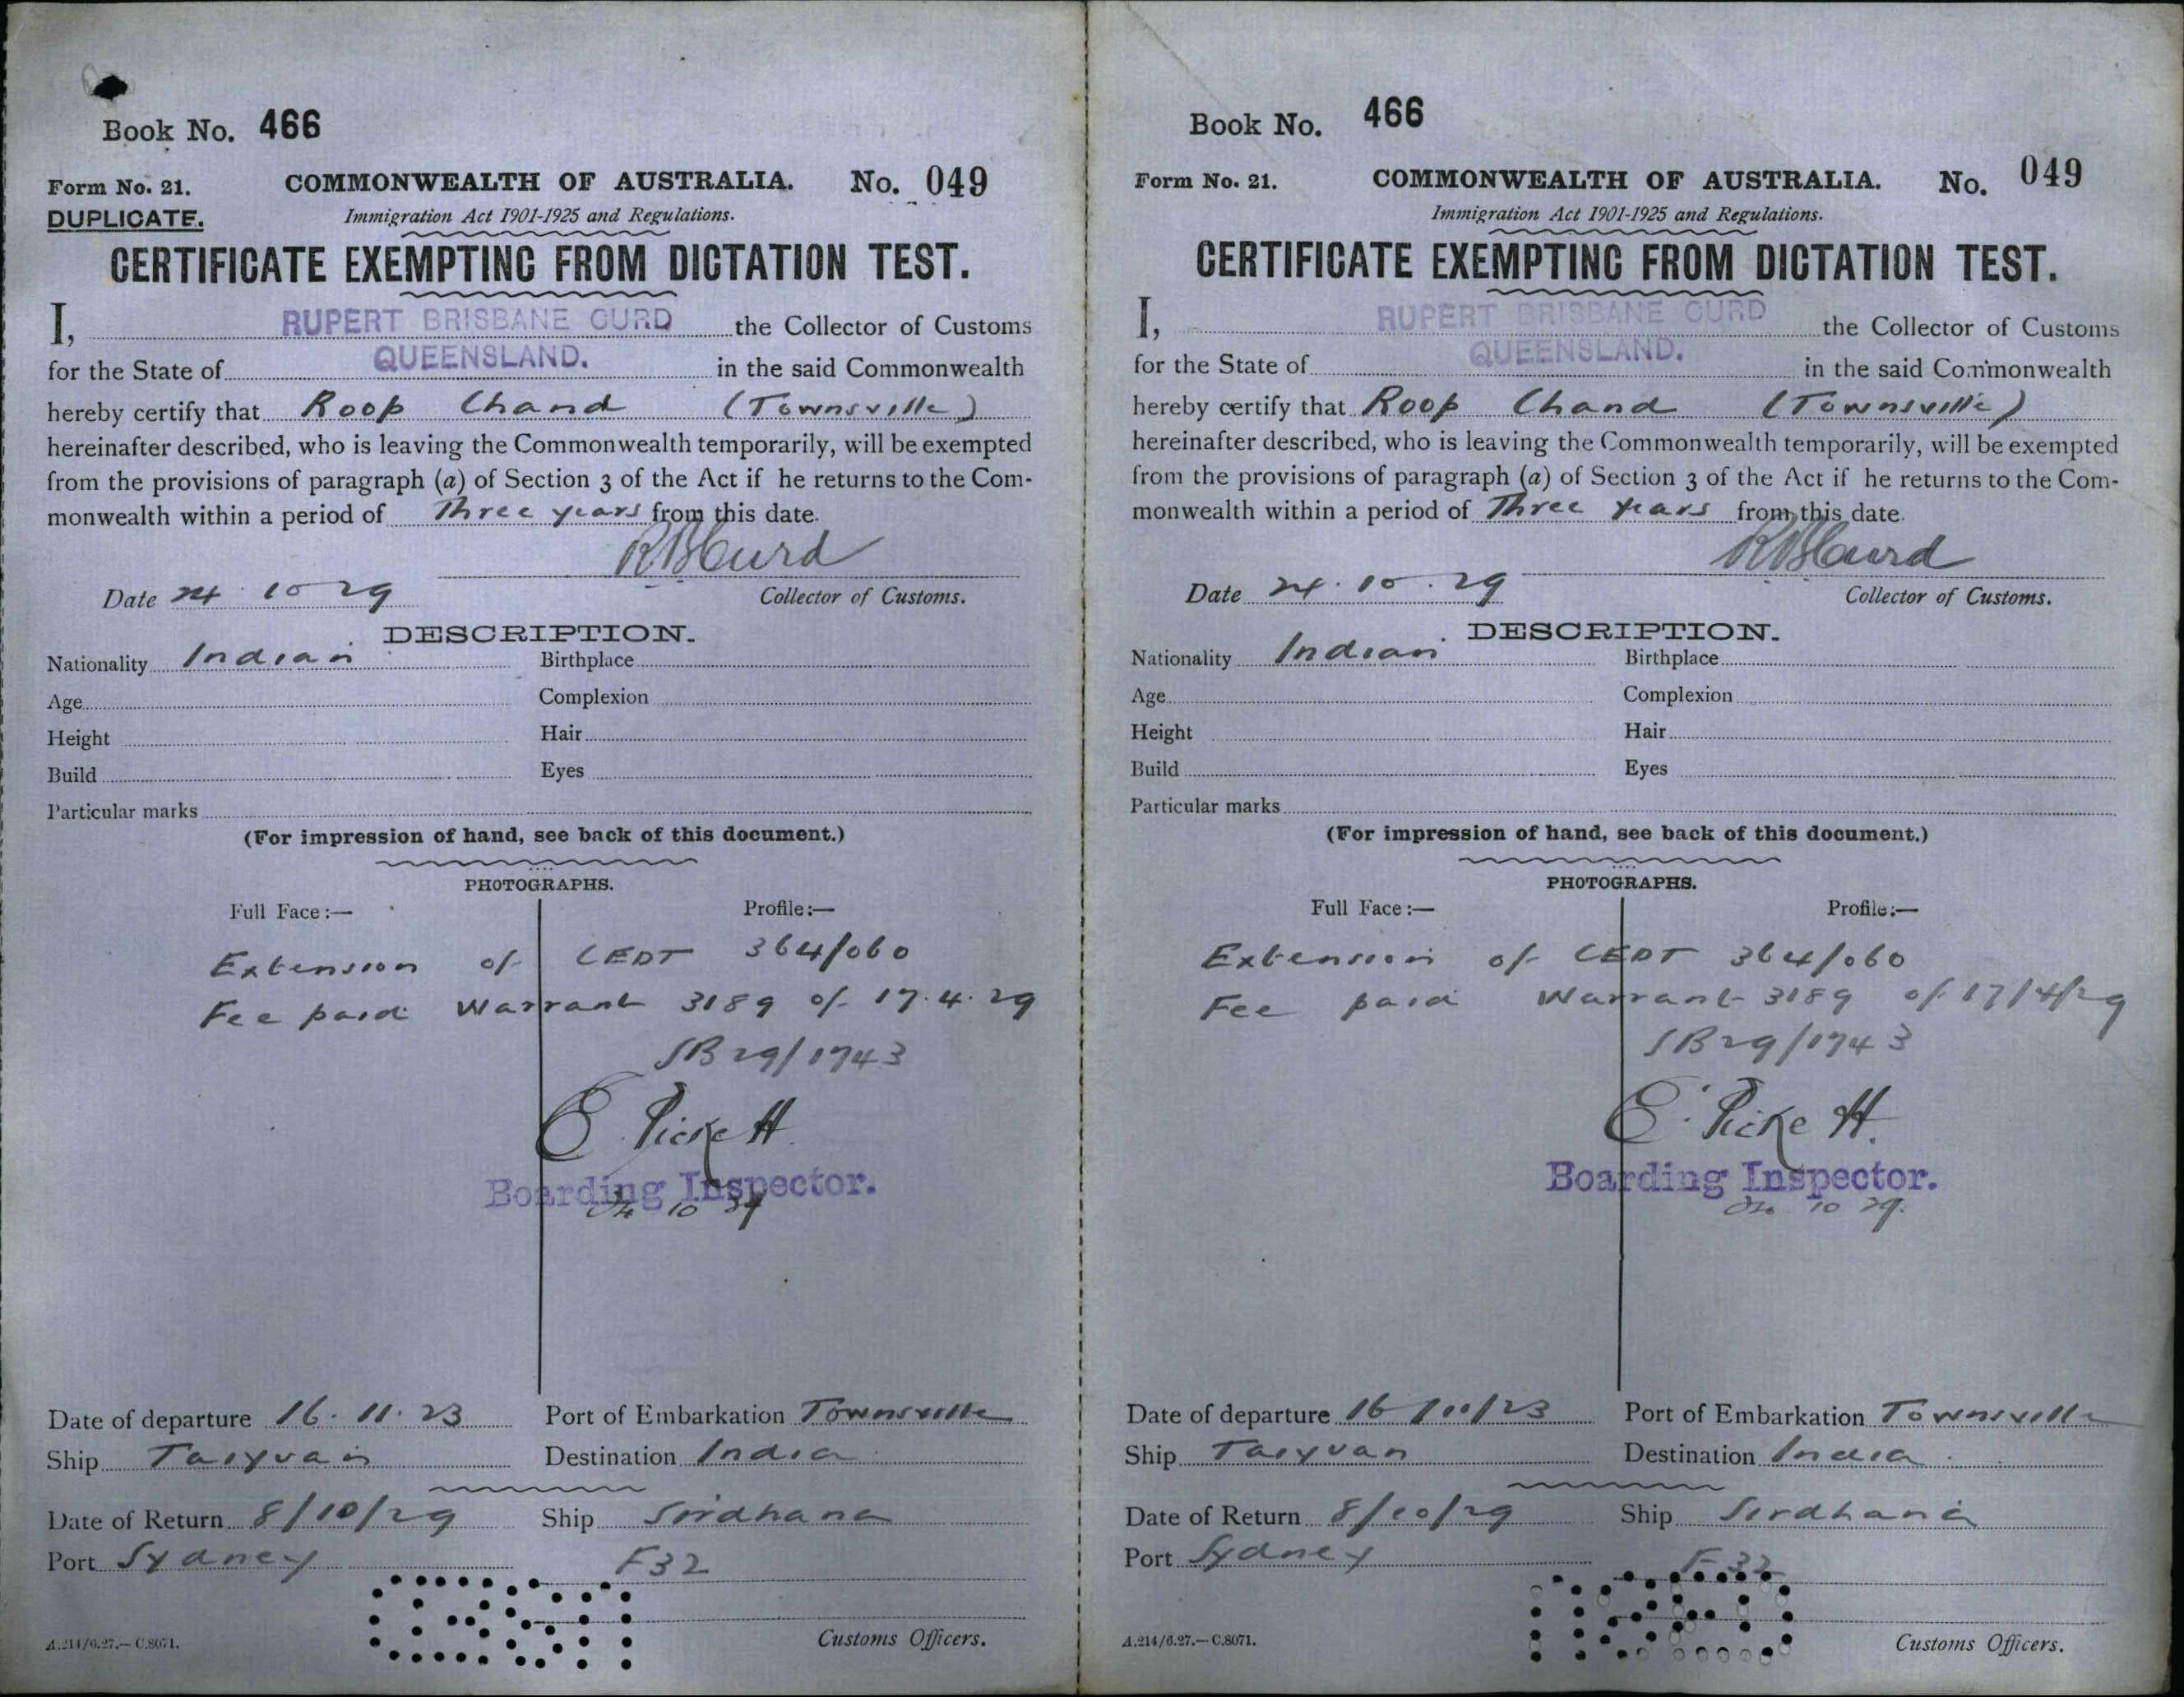 Book No. 466
Form No. 21. COMMONWEALTH OF AUSTRALIA. No. 049
DUPLICATE. Immigration Act 1901-1925 and Regulations.
CERTIFICATE EXEMPTING FROM DICTATION TEST.
I, RUPERT BRISBANE CURD the Collector of Customs
for the State of QUEENSLAND. in the said Commonwealth
hereby certify that Roop Chand (Townsville)
hereinafter described, who is leaving the Commonwealth temporarily, will be exempted
from the provisions of paragraph (a) of Section 3 of the Act if he returns to the Com-
monwealth within a period of Three years from this date.
RBCurd
Date 24 10 29 Collector of Customs.
DESCRIPTION.
Nationality Indian Birthplace
Age Complexion
Height Hair
Build Eyes
Particular marks
(For impression of hand, see back of this document.)
PHOTOGRAPHS.
Full Face:— Profile:—
Extension of CEDT 364/060
Fee paid Warrant 3189 of 17.4.29
SB29/1743
E. Pickett
Boarding Inspector.
24 10 29
Date of departure 16.11.23 Port of Embarkation Townsville
Ship Taiyuan Destination India
Date of Return 8/10/29 Ship Sirdhana
Port Sydney F32
A.214/6.27.—C.8071. Customs Officers.
Book No. 466
Form No. 21. COMMONWEALTH OF AUSTRALIA. No. 049
Immigration Act 1901-1925 and Regulations.
CERTIFICATE EXEMPTING FROM DICTATION TEST.
I, RUPERT BRISBANE CURD the Collector of Customs
for the State of QUEENSLAND. in the said Commonwealth
hereby certify that Roop Chand (Townsville)
hereinafter described, who is leaving the Commonwealth temporarily, will be exempted
from the provisions of paragraph (a) of Section 3 of the Act if he returns to the Com-
monwealth within a period of Three years from this date.
RBCurd
Date 24.10.29 Collector of Customs.
DESCRIPTION.
Nationality Indian Birthplace
Age Complexion
Height Hair
Build Eyes
Particular marks
(For impression of hand, see back of this document.)
PHOTOGRAPHS.
Full Face:— Profile:—
Extension of CEDT 364/060
Fee paid Warrant 3189 of 17/4/29
SB29/1743
E. Pickett.
Boarding Inspector.
24 10 29.
Date of departure 16/11/23 Port of Embarkation Townsville
Ship Taiyuan Destination India
Date of Return 8/10/29 Ship Sirdhana
Port Sydney F32
A.214/6.27.—C.8071. Customs Officers.